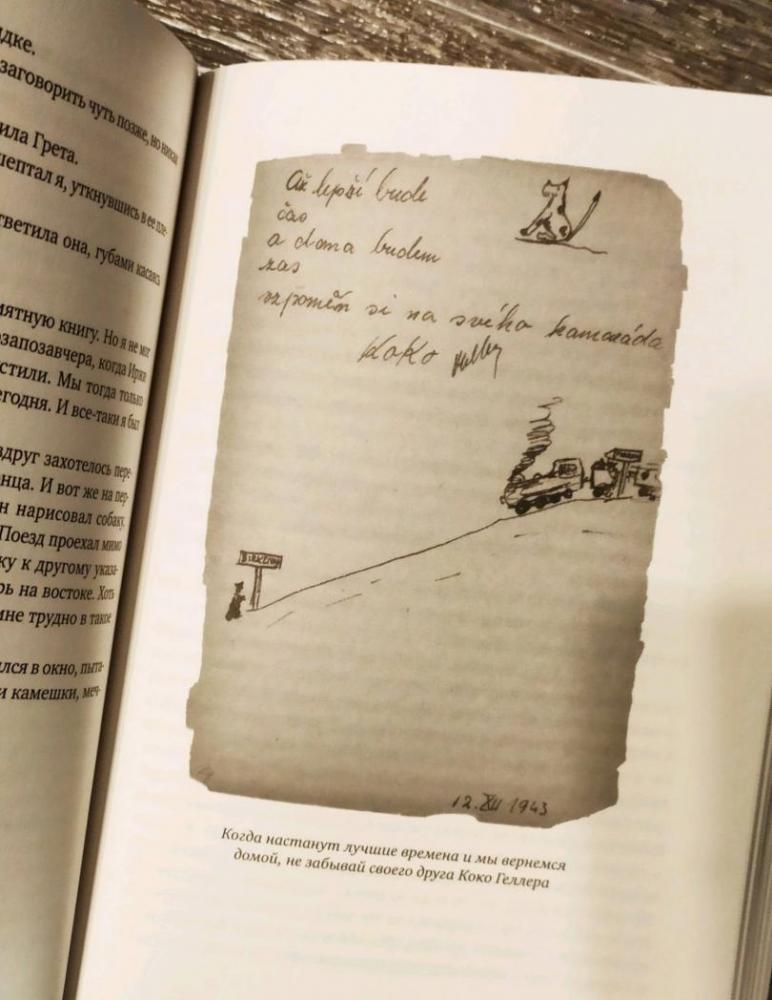 дке.
заговорить чуть позже, но никак
ила Грета.
шептал я, уткнувшись в ее пле-
тветила она, губами касаясь
мятную книгу. Но я не мог
озапозавчера, когда Иржи
стили. Мы тогда только
егодня. И все-таки я был
вдруг захотелось пере-
онца. И вот же на пер-
н нарисовал собаку.
Поезд проехал мимо
ку к другому указа-
рь на востоке. Хоть
мне трудно в такое
лся в окно, пыта-
и камешки, меч-
Až lepší bude
čas
a doma budem
zas
vzpomeň si na svého kamaráda
Koko
12. XII 1943
Когда настанут лучшие времена и мы вернемся
домой, не забывай своего друга Коко Геллера